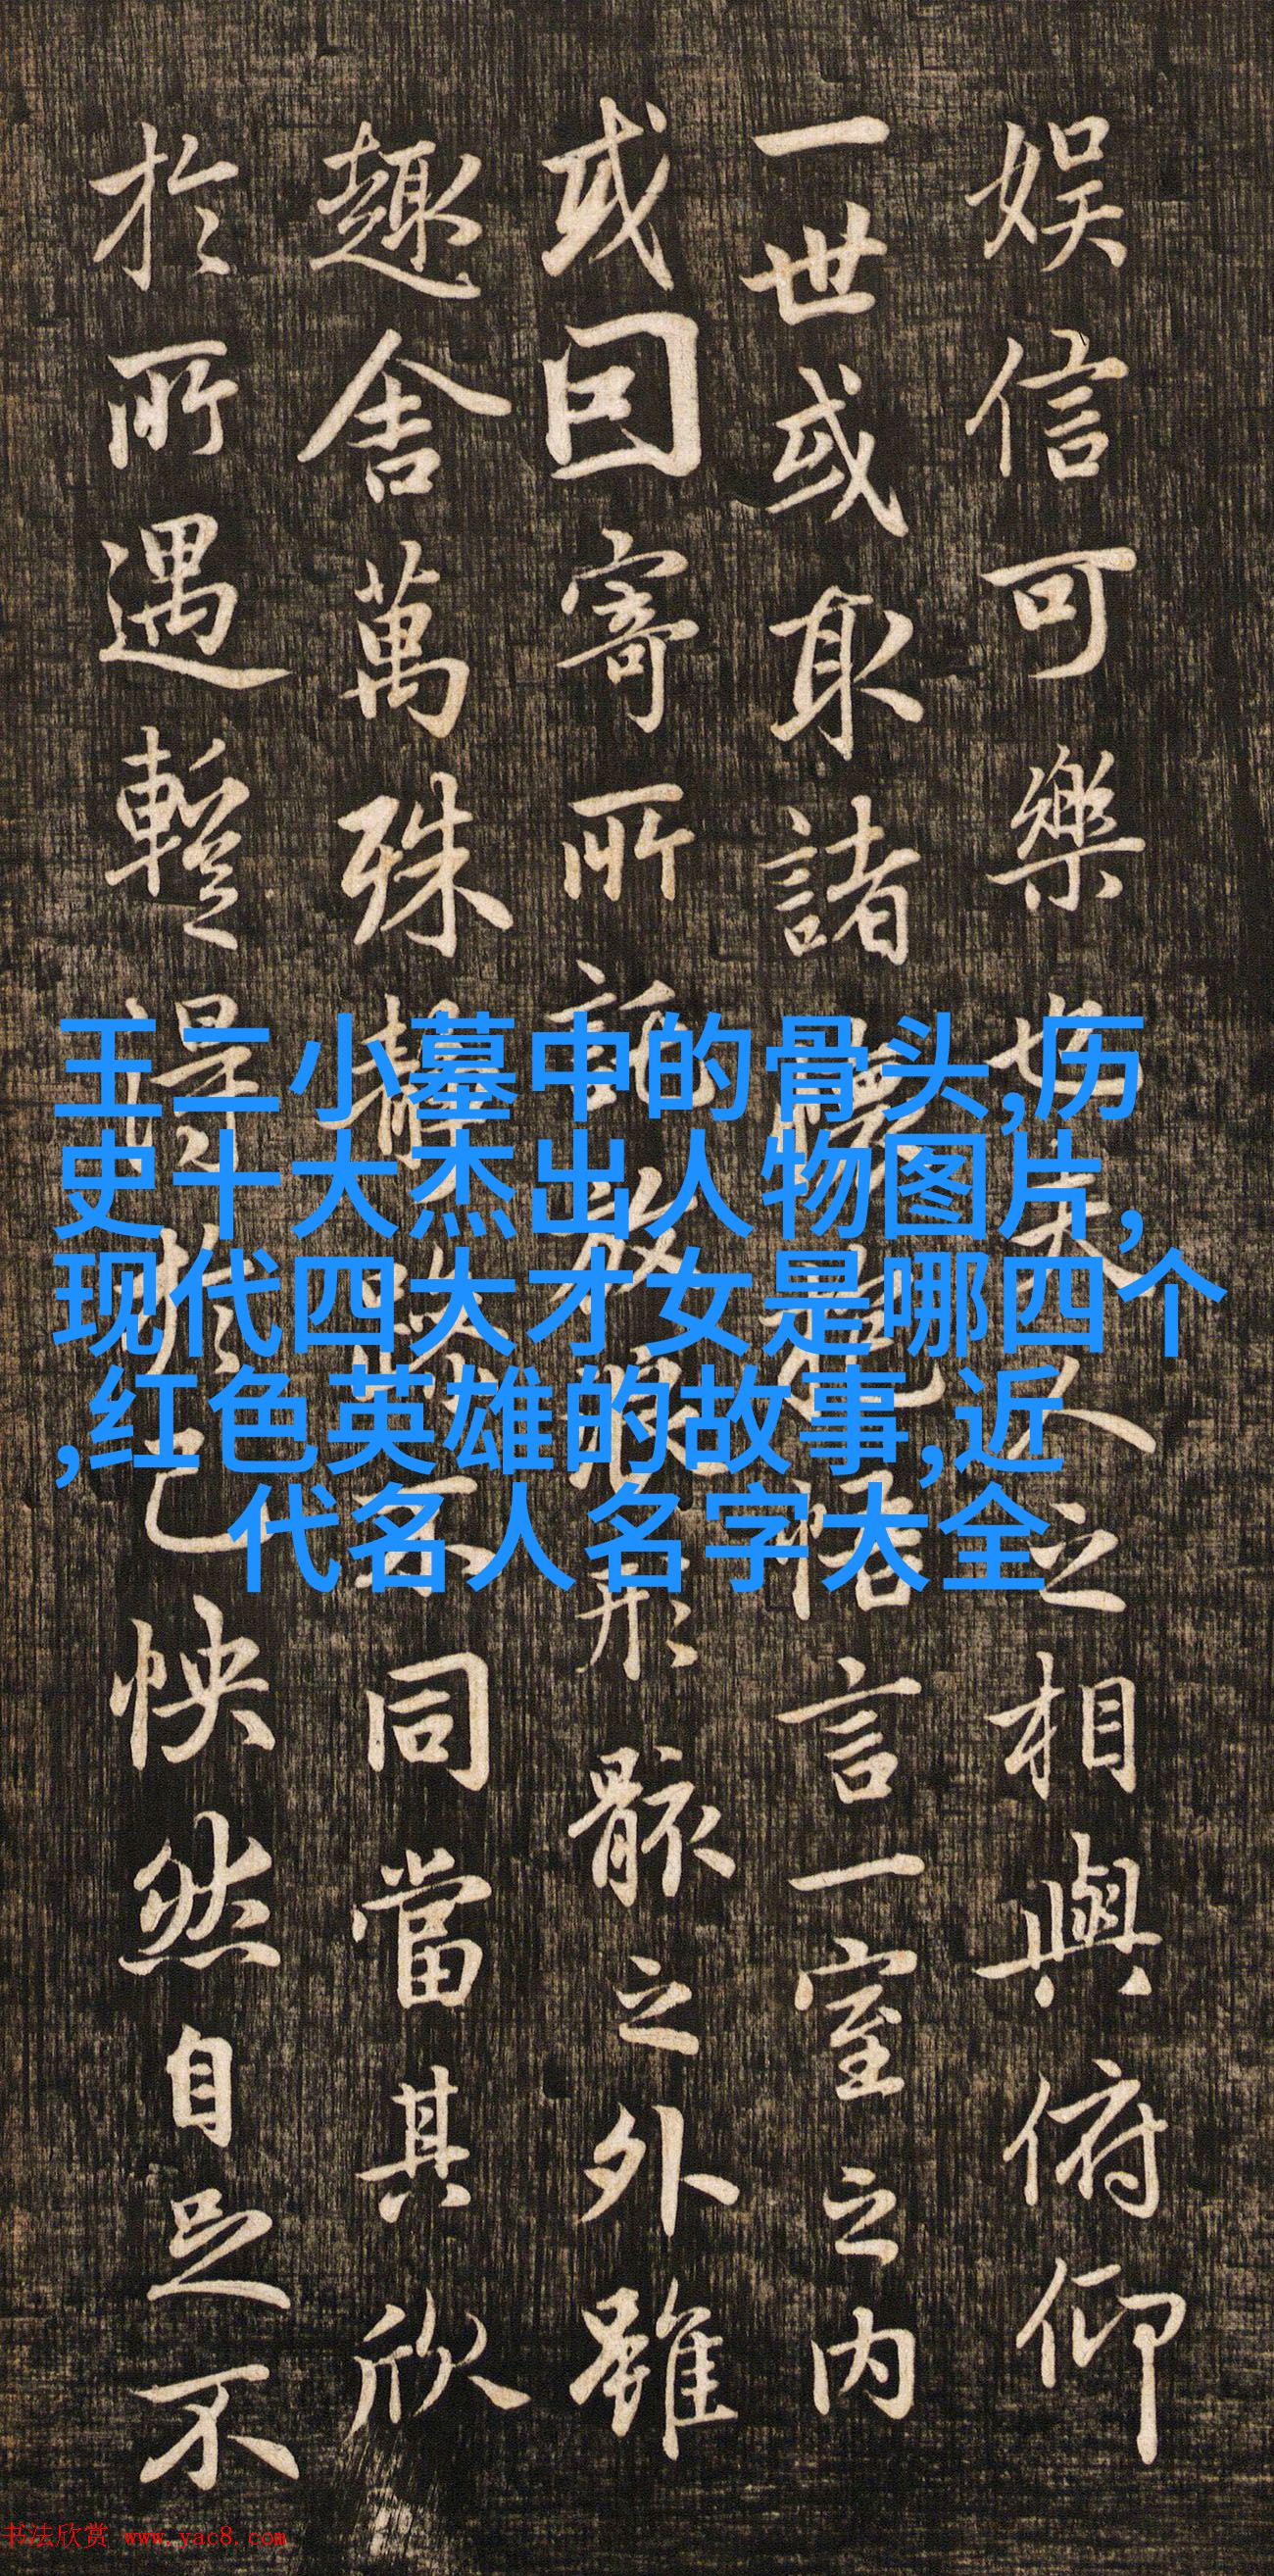 娛信可樂也夫人之相與俯仰
一世或取諸懷抱悟言一室之内
或因寄所託放浪形骸之外雖
趣舍萬殊靜躁不同當其欣
於所遇暫得於己怏然自足不
王二小墓中的骨头,历
史十大杰出人物图片,
现代四大才女是哪四个
,红色英雄的故事,近
代名人名字大全
书法欣赏 www.yac8.com